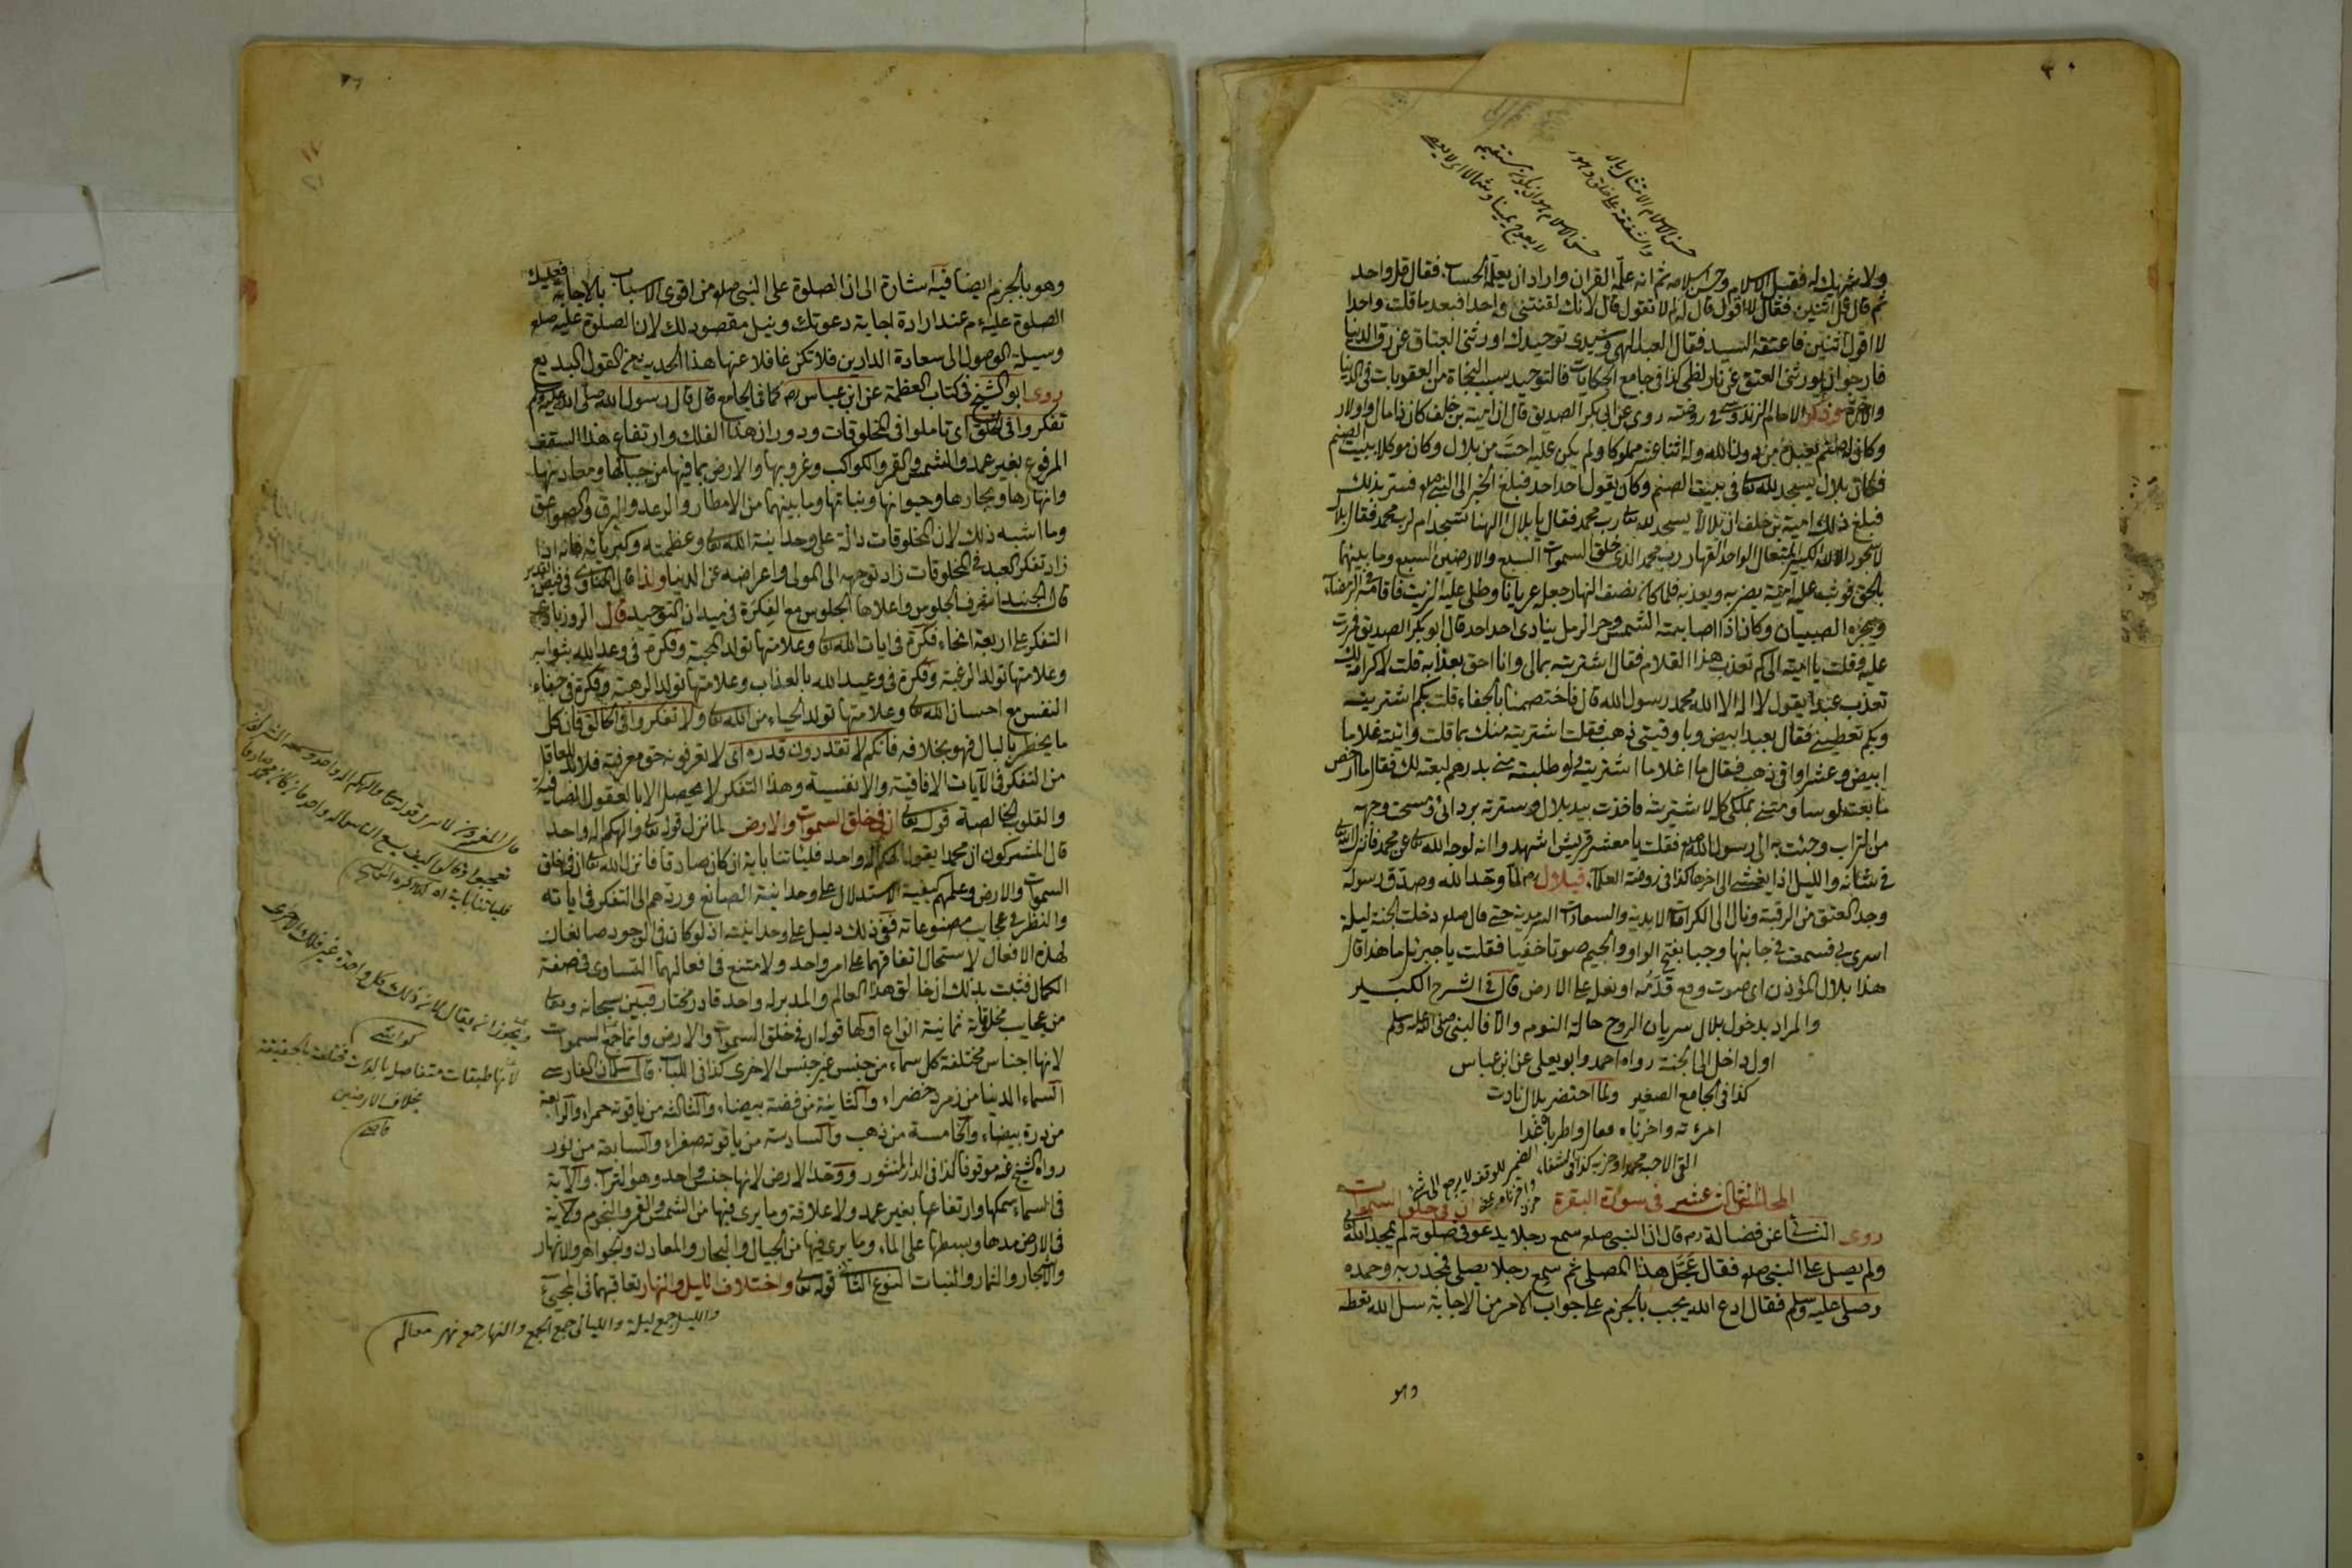 ولا شريك له فقبل الاسلام وحسن اسلامه ثم انه علمه القران واراد ان يعلمه الحساب فقال قل واحد
ثم قال قل اثنين فقال لا اقول قال له لم لا تقول قال لانك لقنتنى واحدا فبعد ما قلت واحدا
لا اقول اثنين فاعتقه السيد فقال العبد الهى وسيدى توحيدك اورثنى العتاق عن رق الدنيا
فارجو ان يورثنى العتق عن نار لظى كذا فى جامع الحكايات فالتوحيد سبب النجاة من العقوبات فى الدنيا
والاخرة وذكر الامام الزندوستى فى روضته روى عن ابى بكر الصديق قال ان امية بن خلف كان ذا مال واولاد
وكان له صنم يعبده من دون الله وله اثنا عشر مملوكا ولم يكن عليه احب من بلال وكان موكلا ببيت الصنم
فكان بلال يسجد لله تعا فى بيت الصنم وكان يقول احد احد فبلغ الخبر الى النبى صلعم فستر بذلك
فبلغ ذلك امية بن خلف ان بلالا يسجد لله تعا رب محمد فقال يا بلال الهنا تسجد ام لرب محمد فقال بلال
لا سجود الا لله الكبير المتعال الواحد القهار رب محمد الذى خلق السموات السبع والارضين السبع وما بينهما
بالحق فوثب عليه امية يضربه ويعذبه فلما كان نصف النهار جعله عريانا وطلى عليه الزيت فاقامه فى الرمضاء
ويجره الصبيان وكان اذا اصابته الشمس وحر الرمل ينادى احد احد قال ابو بكر الصديق فمررت
عليه فقلت يا امية الى كم تعذب هذا الغلام فقال اشتريته بمالى وانا احق بعذابه قلت لا كرامة لك
تعذب عبدا يقول لا اله الا الله محمد رسول الله قال فاختصمنا بالجفاء قلت بكم اشتريته
وبكم تعطينى فقال بعبد ابيض وباوقيتى ذهب فقلت اشتريته منك بما قلت واتيته غلاما
ابيض وعشر اواقى ذهب فقال ما اغلا ما اشتريته لو طلبته منى بدرهم لبعته لك فقال ما ارخص
ما بعته لو ساومتنى بملكى كله لاشتريته فاخذت بيد بلال وسترته بردائى ومسحت وجهه
من التراب وجئت به الى رسول الله صلعم فقلت يا معشر قريش اشهدوا انه لوجه الله تعا عن محمد فانزل الله
فى شانه والليل اذا يغشى الى اخرها كذا فى روضة العلماء فبلال رض لما وحد الله وصدق رسوله
وجد العتق من الرقبة ونال الى الكرامات الابدية والسعادات السرمدية حتى قال صلعم دخلت الجنة ليلة
اسرى بى فسمعت فى جانبها وجبا بفتح الواو والجيم صوتا خفيا فقلت يا جبرئيل ما هذا قال
هذا بلال المؤذن اى صوت وقع قدمه او نعله على الارض قال فى الشرح الكبير
والمراد بدخول بلال سريان الروح حالة النوم والا فالنبى صلى الله عليه وسلم
اول داخل الى الجنة رواه احمد وابو يعلى عن ابن عباس
كذا فى الجامع الصغير ولما احتضر بلال نادت
امرءته واحزناه فقال واطرباه غدا
القى الاحبه محمدا وحزبه كذا فى الشفاء
المجلس الثالث عشر فى سورة البقرة ان فى خلق السموات
روى النسائى عن فضالة رض قال ان النبى صلعم سمع رجلا يدعو فى صلوته لم يمجد الله
ولم يصل على النبى صلعم فقال عجل هذا المصلى ثم سمع رجلا يصلى فمجد ربه وحمده
وصلى عليه وسلم فقال ادع الله يجب بالجزم على جواب الامر من الاجابة سل الله تعطه
وهو
وهو بالجزم ايضا فيه اشارة الى ان الصلوة على النبى صلعم من اقوى الاسباب بالاجابة فعليك
الصلوة عليه م عند ارادة اجابة دعوتك ونيل مقصودك لان الصلوة عليه صلع
وسيلة الوصول الى سعادة الدارين فلا تكن غافلا عنها هذا الحديث من القول البديع
روى ابو الشيخ فى كتاب العظمة عن ابن عباس رض كما فى الجامع قال قال رسول الله صلى الله عليه وسلم
تفكروا فى الخلق اى تاملوا فى المخلوقات ودوران هذا الفلك وارتفاع هذا السقف
المرفوع بغير عمد والشمس والقمر والكواكب وغروبها والارض بما فيها من جبالها ومعادنها
وانهارها وبحارها وحيوانها ونباتها وما بينهما من الامطار والرعد والبرق والصواعق
وما اشبه ذلك لان المخلوقات دالة على وحدانية الله تعا وعظمته وكبريائه فانه اذا
زاد تفكر العبد فى المخلوقات زاد توجهه الى المولى واعراضه عن الدنيا ولذا قال المناوى فى فيض القدير
قال الجنيد اشرف الجلوس واعلاها الجلوس مع الفكرة فى ميدان التوحيد قال الروزبادى
التفكر على اربعة انحاء فكرة فى ايات الله تعا وعلامتها تولد المحبة وفكرة فى وعد الله بثوابه
وعلامتها تولد الرغبة وفكرة فى وعيد الله بالعذاب وعلامتها تولد الرهبة وفكرة فى جفاء
النفس مع احسان الله تعا وعلامتها تولد الحياء من الله تعا ولا تفكروا فى الخالق فان كل
ما يخطر بالبال فهو بخلافه فانكم لا تقدرون قدره اى لا تعرفونه حق معرفته فلا بد للعاقل
من التفكر فى الآيات الافاقية والانفسية وهذا التفكر لا يحصل الا بالعقول الصافية
والقلوب الخالصة قوله تعا ان فى خلق السموات والارض لما نزل قوله تعا والهكم اله واحد
قال المشركون ان محمدا يقول الهكم اله واحد فليئاتنا باية ان كان صادقا فانزل الله تعا ان فى خلق
السموات والارض وعلمهم كيفية الاستدلال على وحدانية الصانع وردهم الى التفكر فى اياته
والنظر فى عجايب مصنوعاته ففى ذلك دليل على وحدانيته اذ لو كان فى الوجود صانعان
لهذه الافعال لاستحال اتفاقهما على امر واحد ولامتنع فى افعالهما التساوى فى صفة
الكمال فثبت بذلك ان خالق هذا العالم والمدبر له واحد قادر مختار فبين سبحانه وتعا
من عجايب مخلوقاته ثمانية انواع اولها قوله ان فى خلق السموات والارض وانما جمع السموات
لانها اجناس مختلفة كل سماء من جنس غير جنس الاخرى كذا فى اللباب قال سلمان الفارسى
السماء الدنيا من زمرد خضراء والثانية من فضة بيضاء والثالثه من ياقوته حمراء والرابعة
من درة بيضاء والخامسة من ذهب والسادسة من ياقوته صفراء والسابعة من نور
رواه الشيخ عنه موقوفا كذا فى الدر المنثور ووحد الارض لانها جنس واحد وهو التراب والآية
فى السماء سمكها وارتفاعها بغير عمد ولا علاقة وما يرى فيها من الشمس والقمر والنجوم والآية
فى الارض مدها وبسطها على الماء وما يرى فيها من الجبال والبحار والمعادن والجواهر والانهار
والاشجار والثمار والنبات النوع الثانى قوله تعا واختلاف الليل والنهار تعاقبهما فى المجيئ
والليل جمع ليلة والليالى جمع الجمع والنهار جمع نهر معالم
لانها طبقات متفاصل بالذات مختلفة بالحقيقة
بخلاف الارضين
قاضى